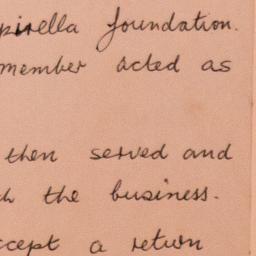 pirella foundation.
member acted as
then served and
the business.
accept a return